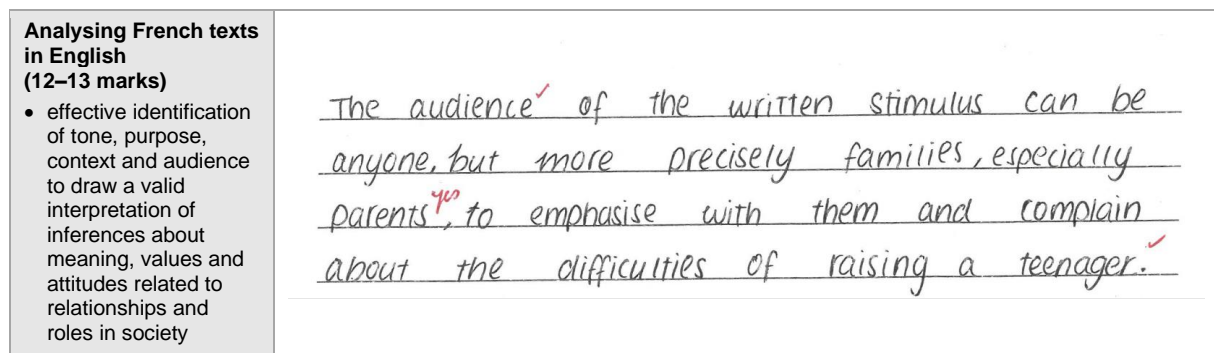 Analysing French texts
in English
(12–13 marks)
• effective identification
of tone, purpose,
context and audience
to draw a valid
interpretation of
inferences about
meaning, values and
attitudes related to
relationships and
roles in society
The audience✓ of the written stimulus can be
anyone, but more precisely families, especially
parents yes, to emphasise with them and complain
about the difficulties of raising a teenager.✓